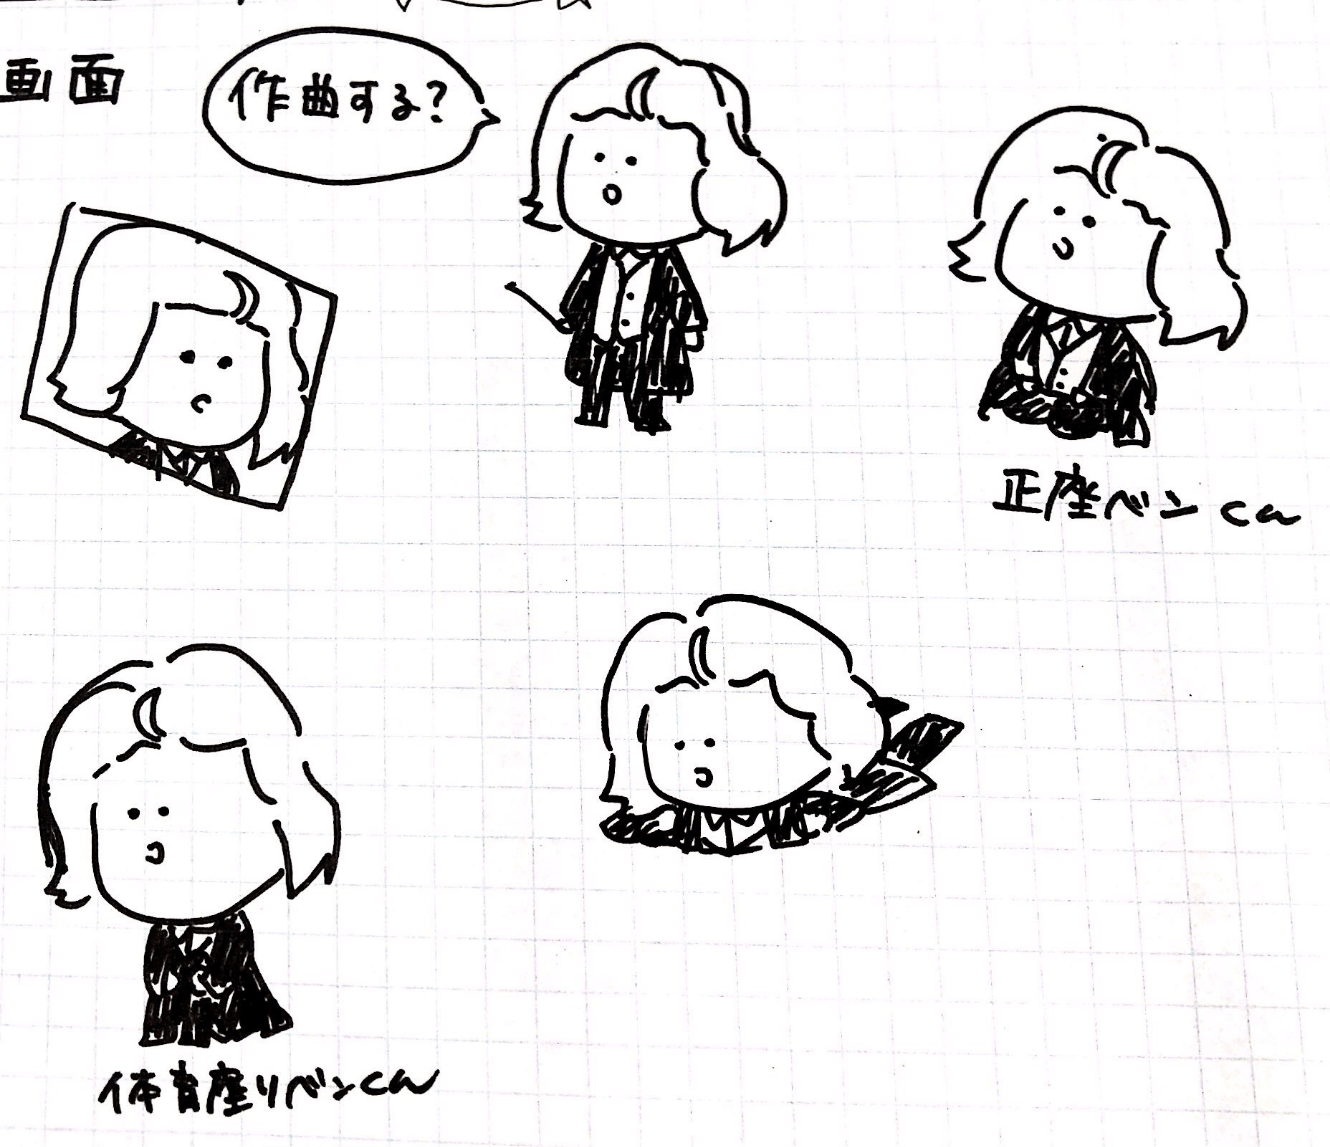 画面
作曲する?
正座ベンくん
体育座りベンくん